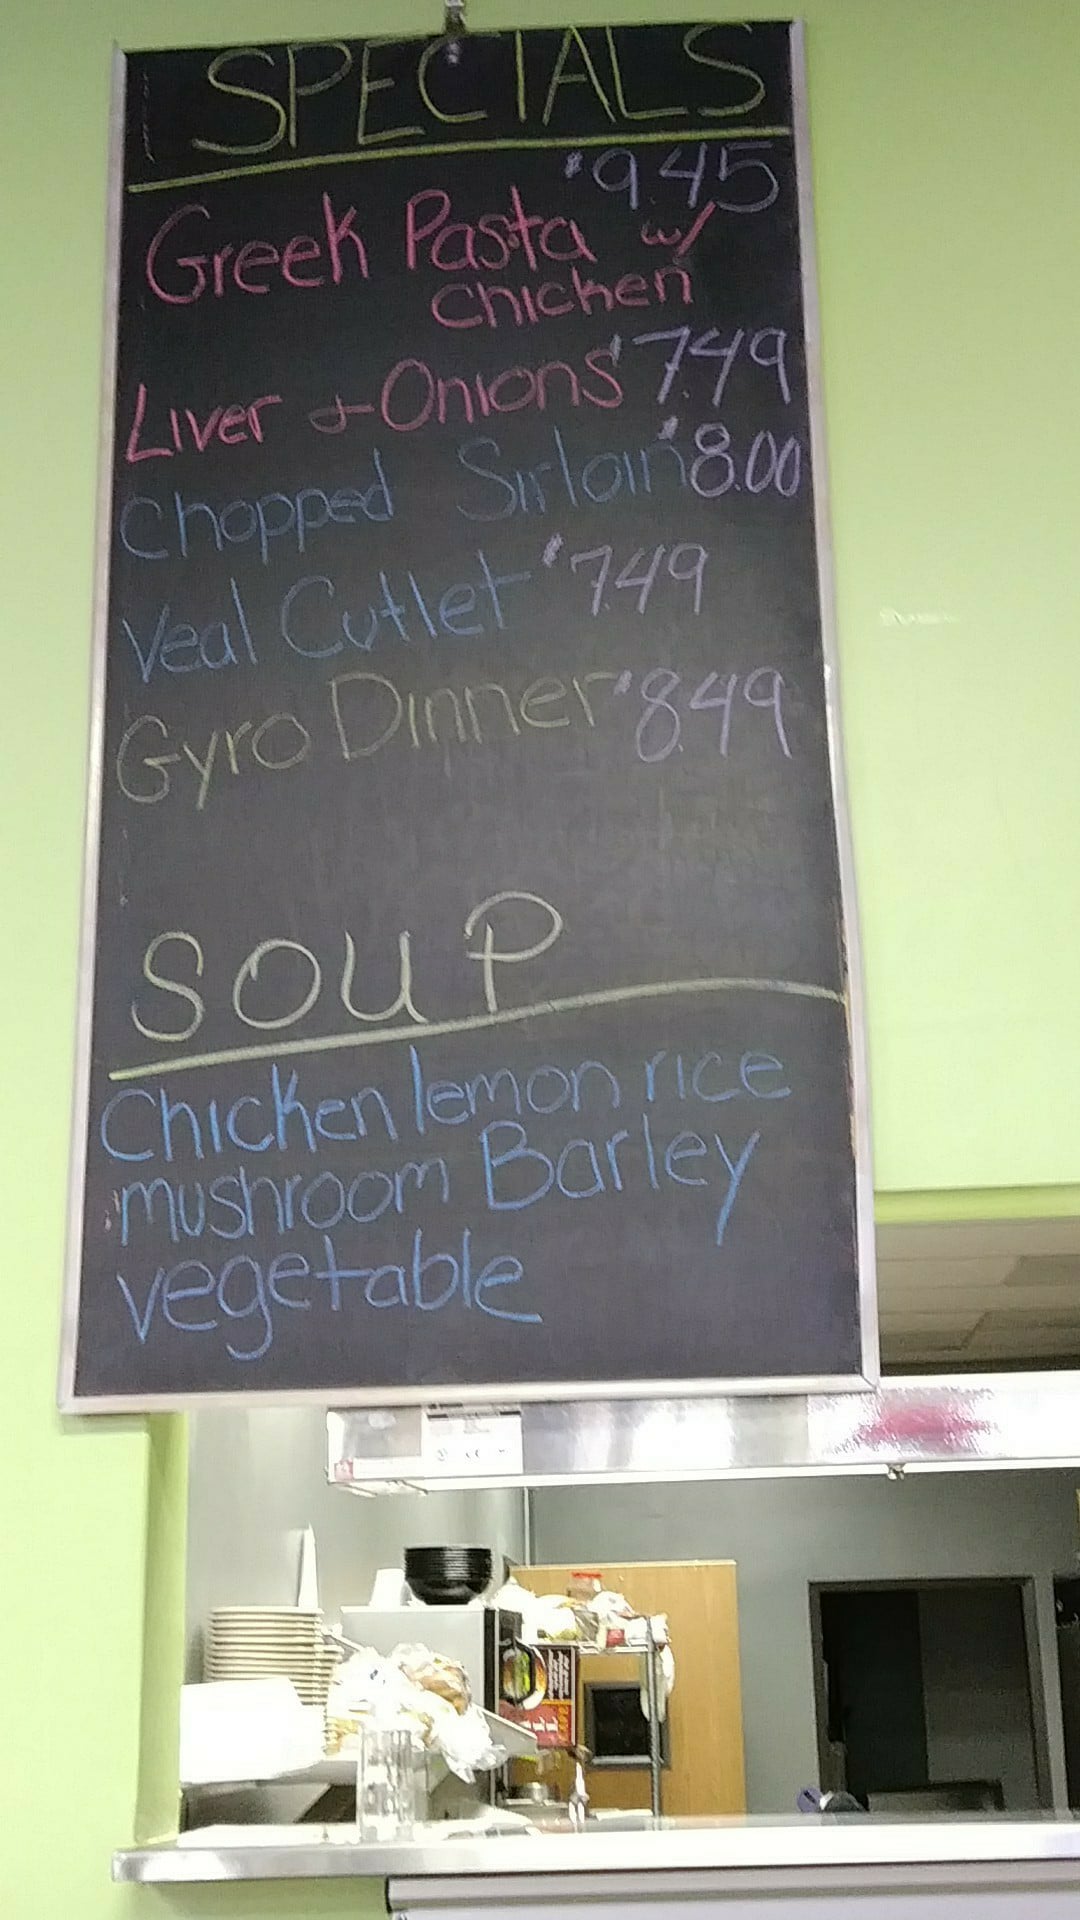 SPECIALS
$9.45
Greek Pasta w/
Chicken
Liver & Onions $7.49
Chopped Sirloin $8.00
Veal Cutlet $7.49
Gyro Dinner $8.49
SOUP
Chicken lemon rice
mushroom Barley
vegetable